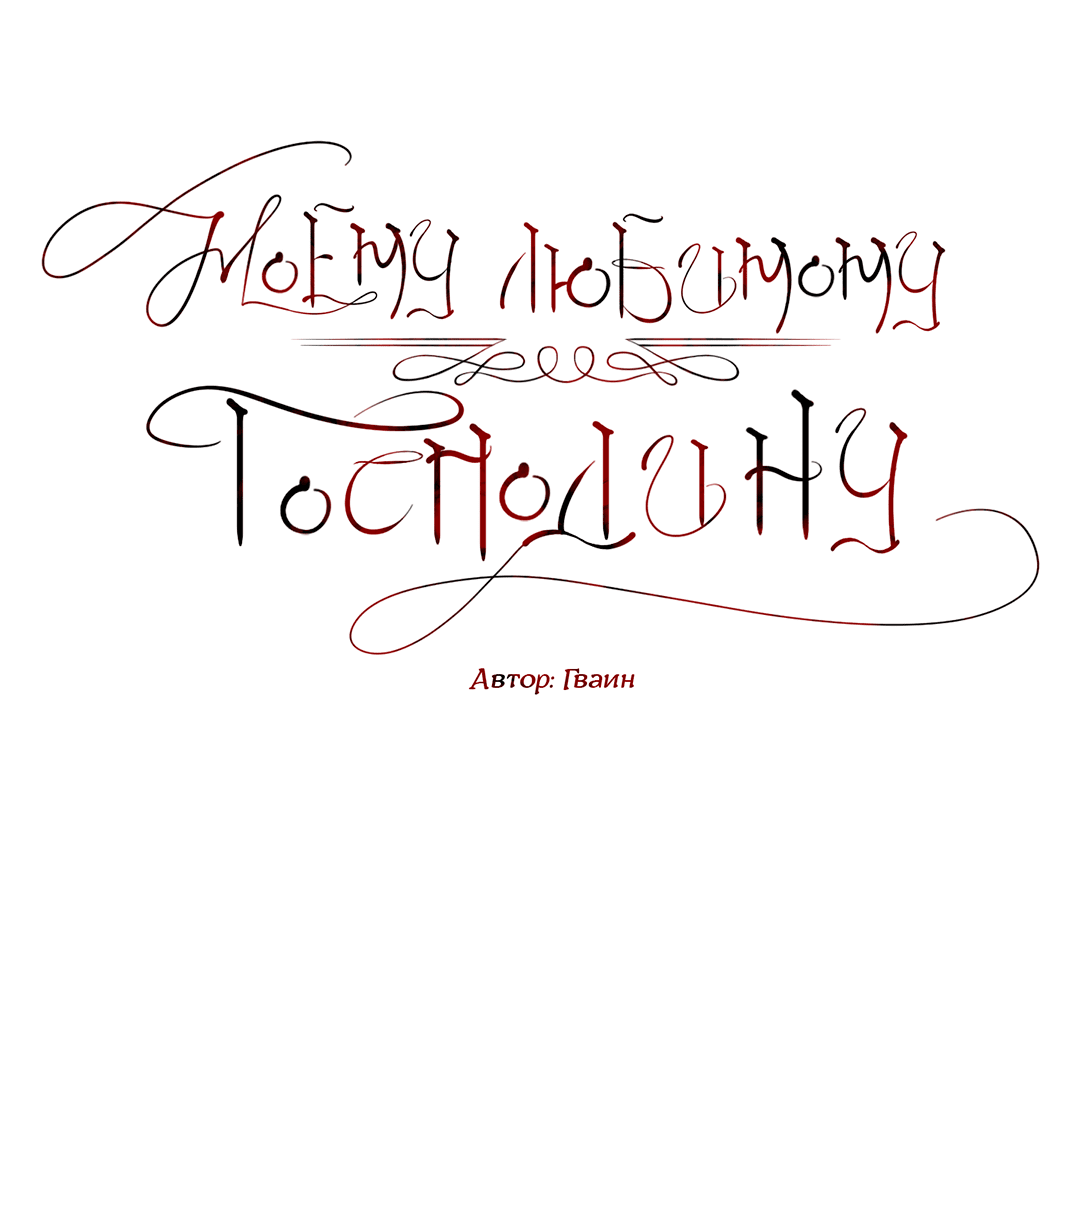 Моему любимому
Господину
Автор: Гваин